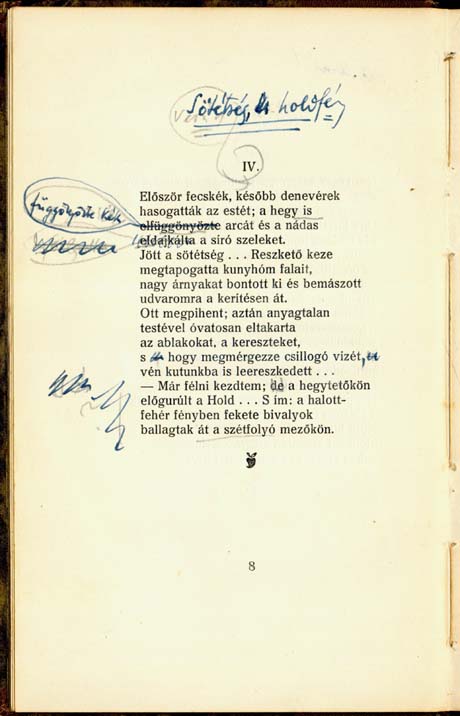 Sötétség, és holdfén
IV.
Először fecskék, később denevérek
hasogatták az estét; a hegy is
függönyözte kék
elfüggönyözte arcát és a nádas
eldajkálta a síró szeleket.
Jött a sötétség . . . Reszkető keze
megtapogatta kunyhóm falait,
nagy árnyakat bontott ki és bemászott
udvaromra a kerítésen át.
Ott megpihent; aztán anyagtalan
testével óvatosan eltakarta
az ablakokat, a kereszteket,
s hogy megmérgezze csillogó vizét,
vén kutunkba is leereszkedett . . .
— Már félni kezdtem; de a hegytetőkön
előgurúlt a Hold . . . S ím: a halott-
fehér fényben fekete bivalyok
ballagtak át a szétfolyó mezőkön.
8